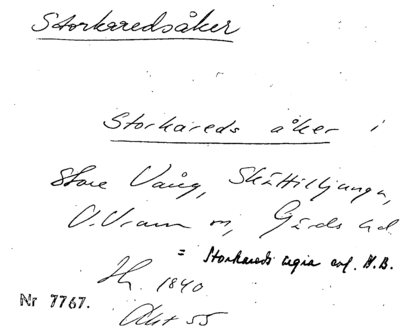 Storkaredsåker
Storkareds åker i
Store Vång, Skättilljunga,
V. Vram sn, Gärds hd
= Storkareds enl. H.B.
1840
Nr 7767.
Akt 55